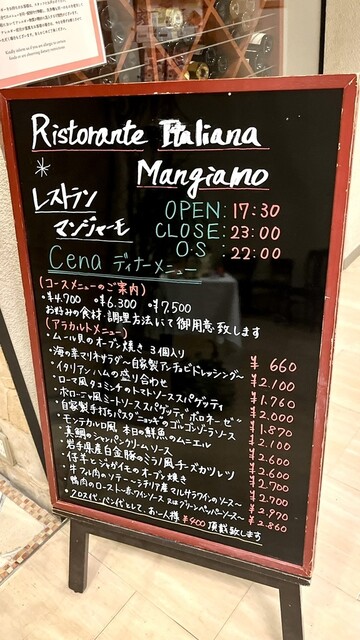 Kindly inform us if you have any allergies to certain
foods or are observing dietary restrictions.
Ristorante Italiana
Mangiamo
レストラン
マンジャーモ
OPEN: 17:30
CLOSE: 23:00
O.S: 22:00
Cena ディナーメニュー
(コースメニューのご案内)
・¥4.700 ・¥6.300 ・¥7.500
お好みの食材・調理方法にて御用意致します
(アラカルトメニュー)
・ムール貝のオーブン焼き 3個入り ¥660
・海の幸マリネサラダ~自家製アンチョビドレッシング~ ¥2.100
・イタリアンハムの盛り合わせ ¥1.760
・ローマ風タコミンチのトマトソーススパゲッティ ¥2.000
・ボローニャ風ミートソーススパゲッティ"ボロネーゼ" ¥1.870
・自家製手打ちパスタ"ニョッキ"のゴルゴンゾーラソース ¥2.100
・モンテカルロ風 本日の鮮魚のムニエル ¥2.600
・真鯛のシャンパンクリームソース ¥2.600
・岩手県産白金豚のミラノ風チーズカツレツ ¥2.700
・仔羊とジャガイモのオーブン焼き ¥2.700
・牛フィレ肉のソテー~シチリア産マルサラワインのソース~ ¥2.970
・鴨肉のロースト~赤ワインソース又はグリーンペッパーソース~ ¥2.860
・クロス代、パン代として、お一人様 ¥400 頂戴致します